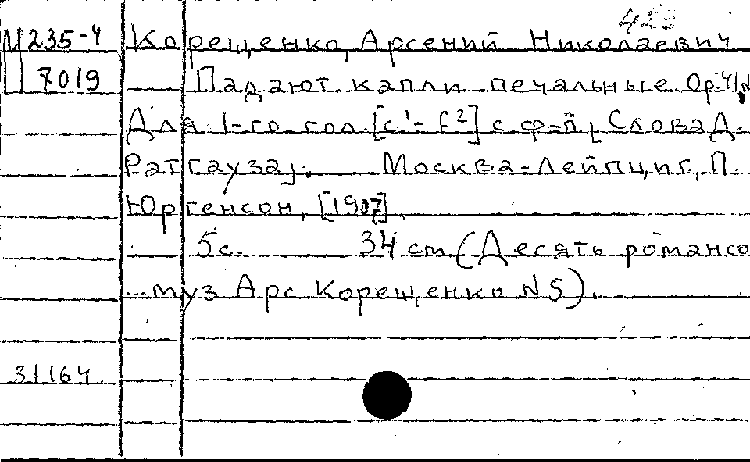 423
М 235-4 Корещенко, Арсений Николаевич
7019 Падают капли печальные Op. 41, N
Для 1-го гол [c¹-f²] с ф-п, [Слова Д.
Ратгауза]. Москва-Лейпциг, П.
Юргенсон, [1907].
5 с. 34 см (Десять романсо
муз Арс Корещенко N 5).
31164